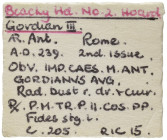 Beachy Hd. No. 2. Hoard
Gordian III.
R. Ant. Rome.
A.D. 239. 2nd. issue.
Obv. IMP. CAES. M. ANT.
GORDIANVS AVG.
Rad. bust r. dr. & cuir.
R/. P.M. TR. P. II. COS. PP.
Fides stg. l.
C. 205. RIC 15